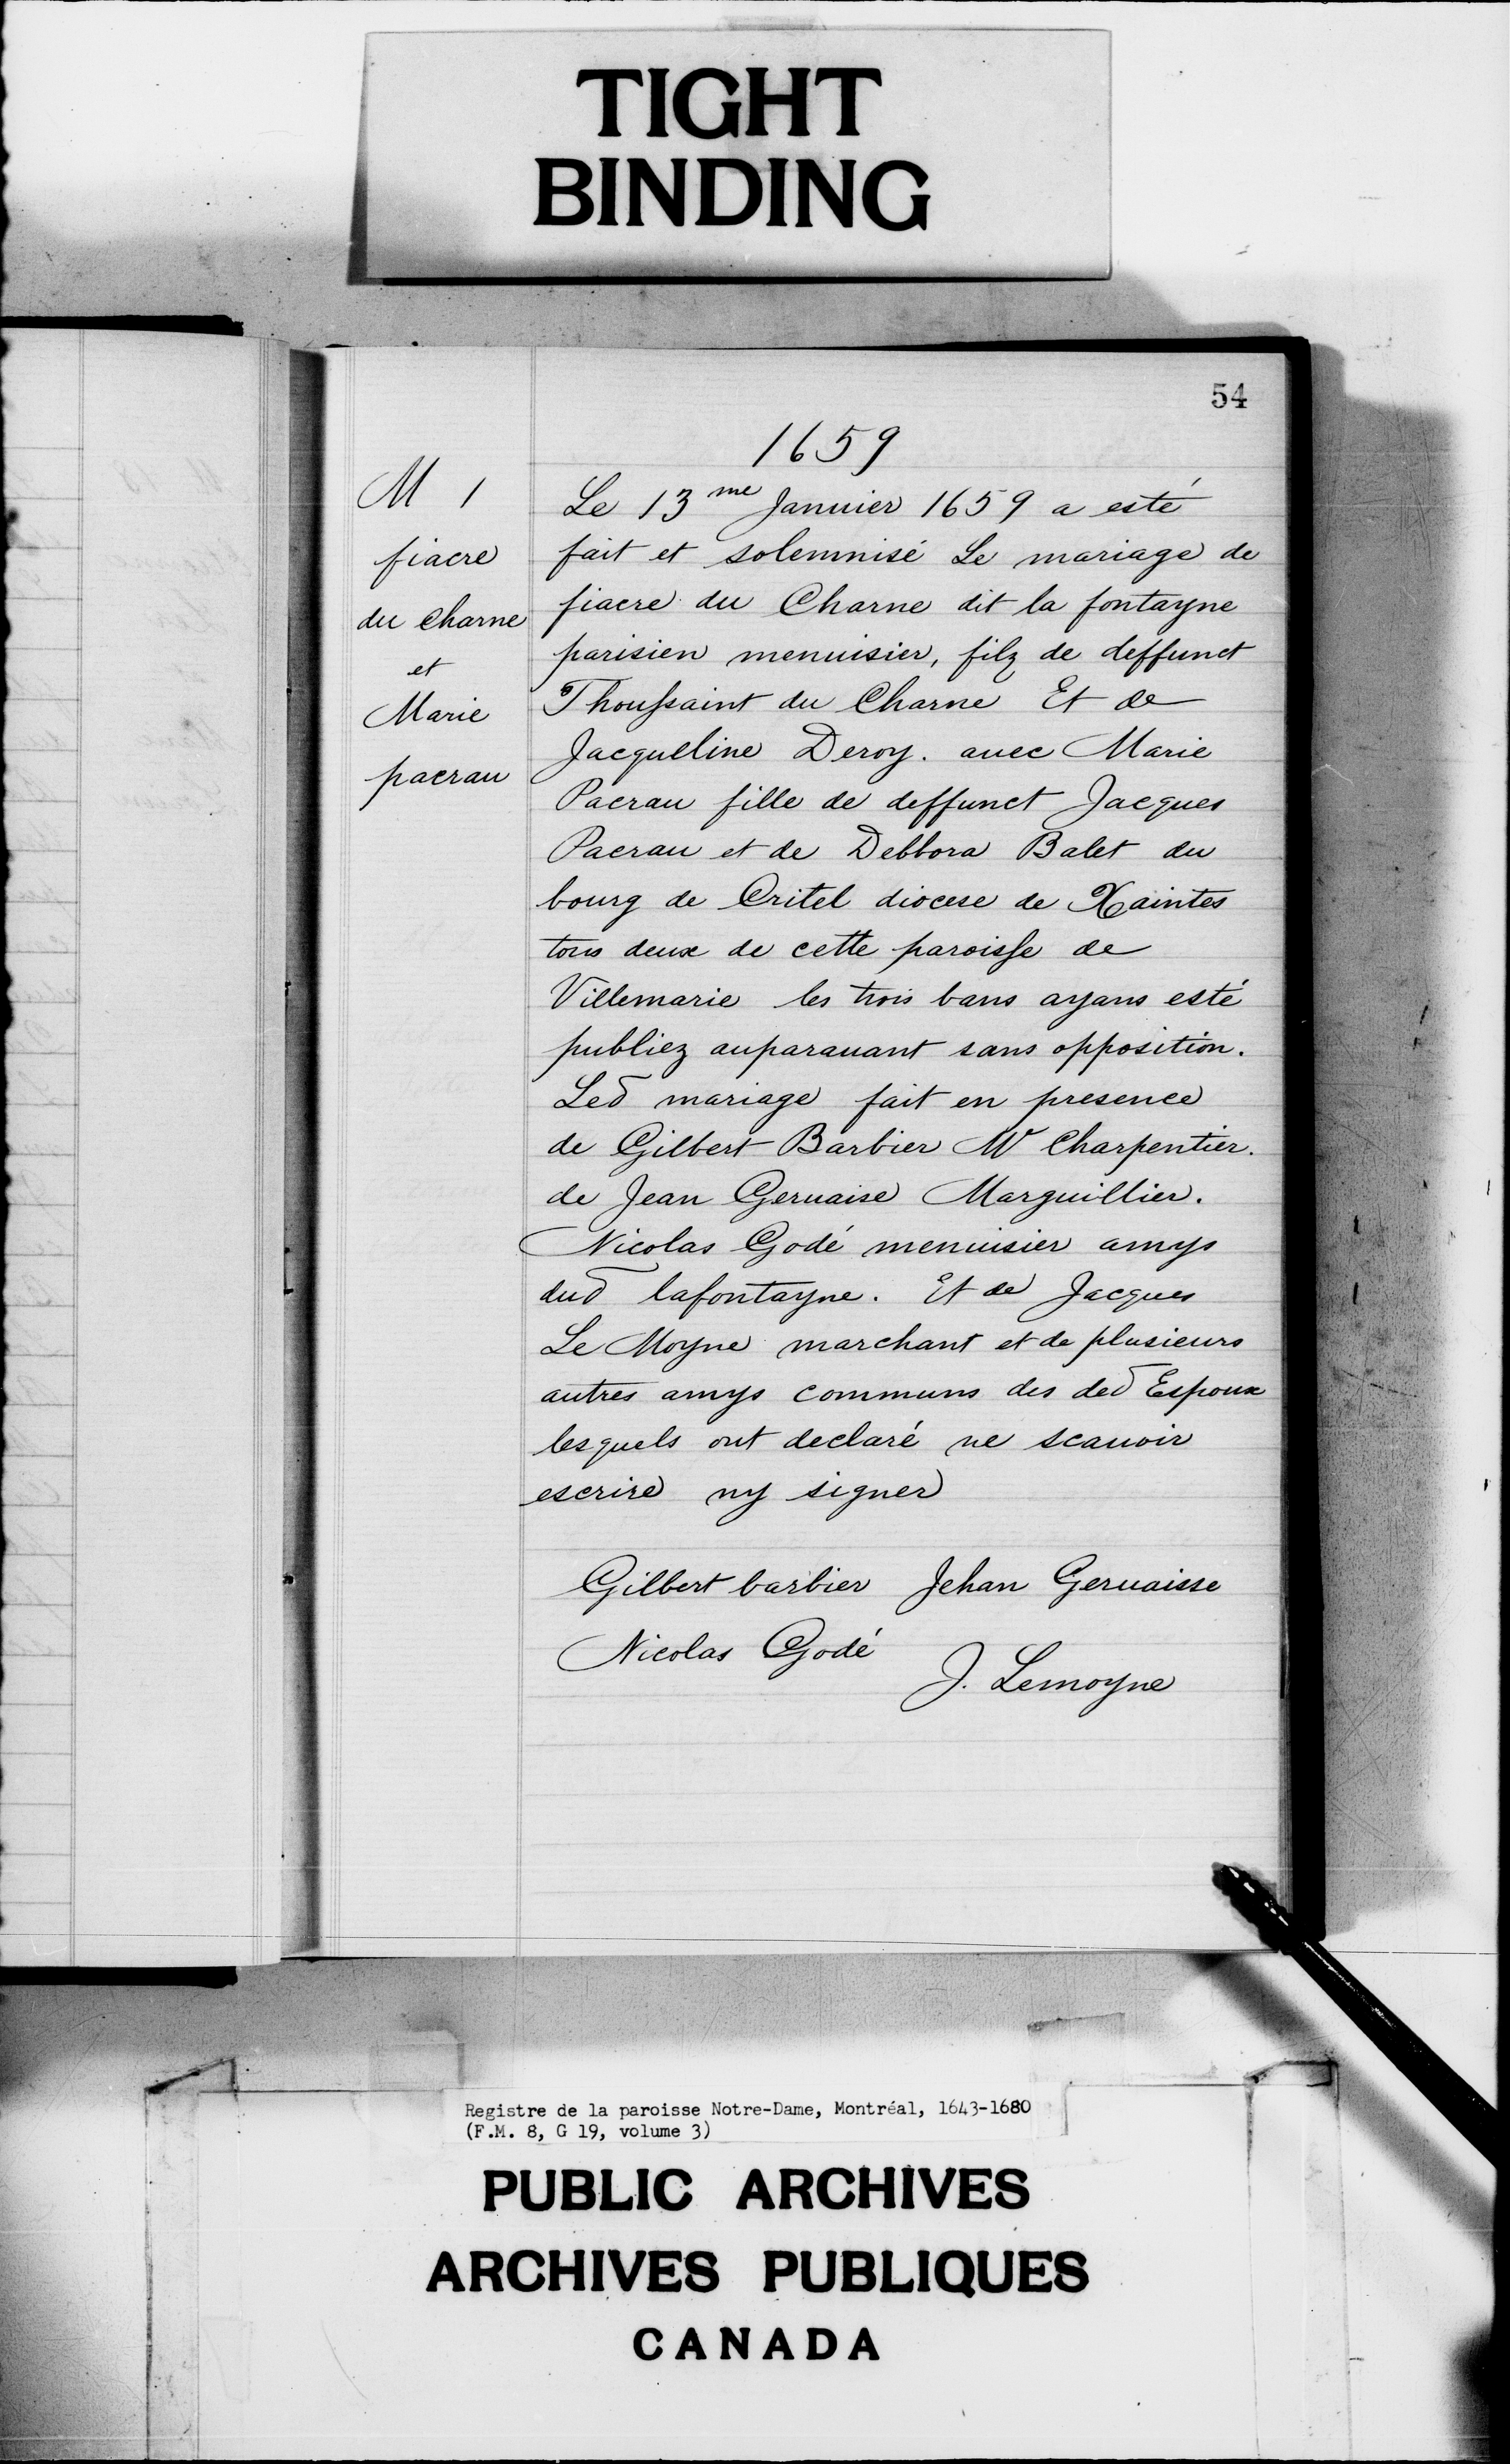 TIGHT
BINDING
54
1659
M 1
fiacre
du Charne
et
Marie
pacrau
Le 13me Januier 1659 a esté
fait et solemnisé Le mariage de
fiacre du Charne dit la fontayne
parisien menuisier, filz de deffunct
Thoussaint du Charne Et de
Jacqueline Deroy. auec Marie
Pacrau fille de deffunct Jacques
Pacrau et de Debbora Balet du
bourg de Critel diocese de Xaintes
tous deux de cette paroisse de
Villemarie les trois bans ayans esté
publiez auparauant sans opposition.
Led mariage fait en presence
de Gilbert Barbier Mr Charpentier.
de Jean Geruaise Marguillier.
Nicolas Godé menuisier amys
dud lafontayne. Et de Jacques
Le Moyne marchant et de plusieurs
autres amys communs des ded Espoux
lesquels ont declaré ne scauoir
escrire ny signer
Gilbert barbier Jehan Geruaisse
Nicolas Godé
J. Lemoyne
Registre de la paroisse Notre-Dame, Montréal, 1643-1680
(F.M. 8, G 19, volume 3)
PUBLIC ARCHIVES
ARCHIVES PUBLIQUES
CANADA